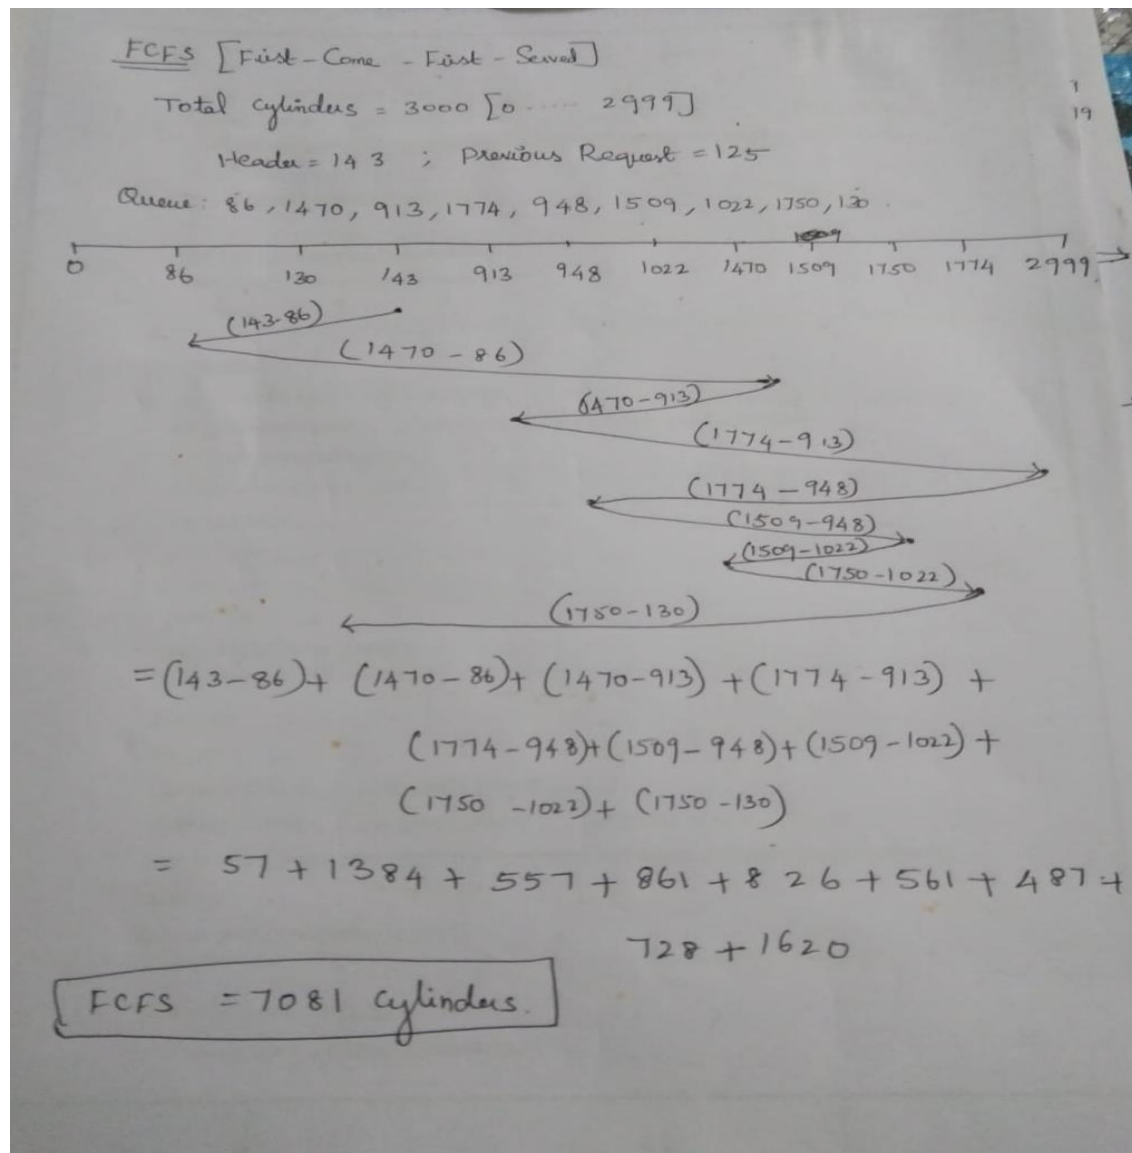 FCFS [First-Come - First - Served]
Total cylinders = 3000 [0 ..... 2999]
Header = 143 ; Previous Request = 125
Queue: 86, 1470, 913, 1774, 948, 1509, 1022, 1750, 130.
0 86 130 143 913 948 1022 1470 1509 1750 1774 2999
(143-86)
(1470 - 86)
(1470-913)
(1774-913)
(1774 - 948)
(1509-948)
(1509-1022)
(1750-1022)
(1750-130)
= (143-86)+ (1470-86)+ (1470-913) + (1774-913) +
(1774-948)+(1509-948)+(1509-1022)+
(1750 -1022)+ (1750-130)
= 57 + 1384 + 557 + 861 + 826 + 561 + 487 +
728 + 1620
FCFS = 7081 cylinders.
1
19